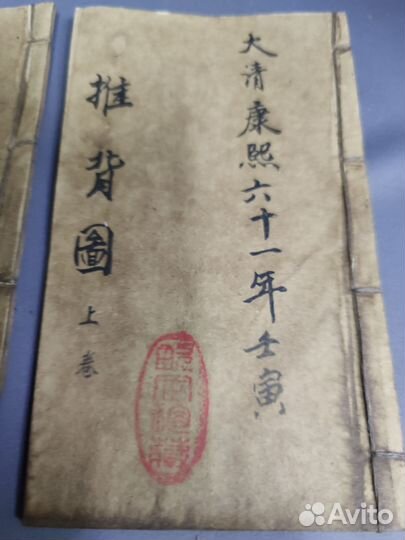 大清康熙六十一年壬寅
推背圖
上卷
Avito